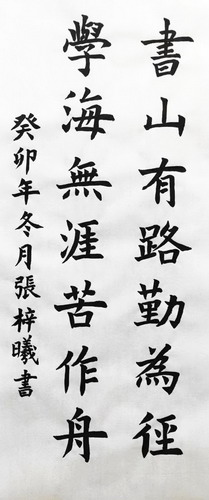 書山有路勤為徑
學海無涯苦作舟
癸卯年冬月張梓曦書